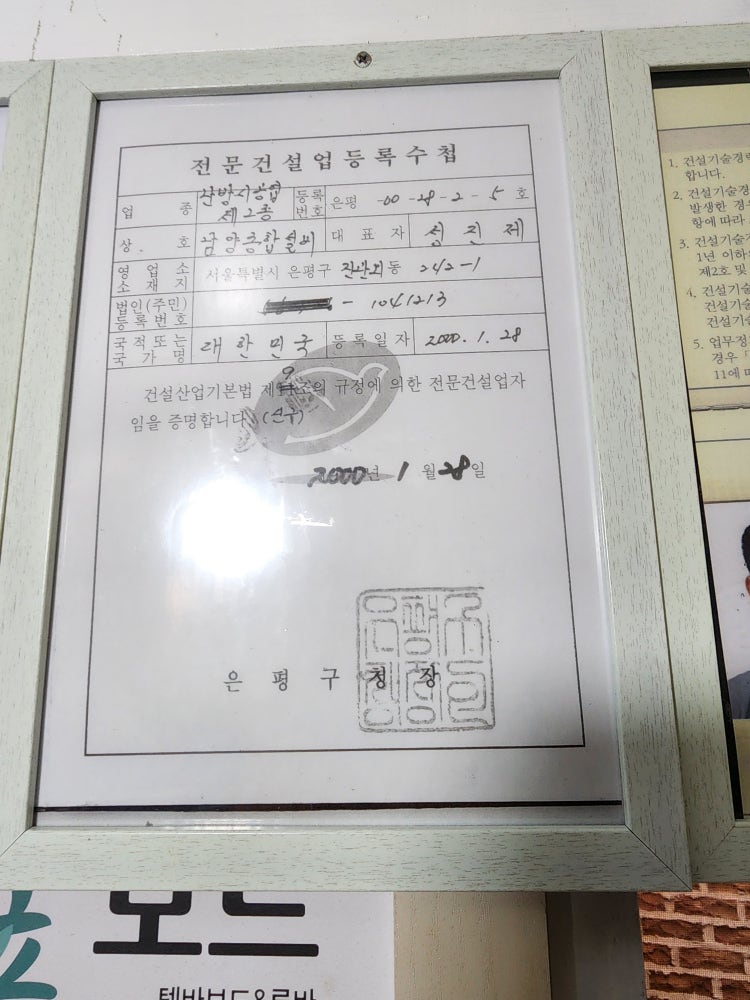 전문건설업등록수첩
업 종 난방시공업 제2종 등록번호 은평 -00-28-2-5 호
상 호 남양종합설비 대 표 자 성 진 제
영 업 소 소 재 지 서울특별시 은평구 진관외동 242-1
법인(주민) 등록번호 - 1041213
국적 또는 국 가 명 대 한 민 국 등록일자 2000. 1. 28
9
건설산업기본법 제 조의 규정에 의한 전문건설업자
임을 증명합니다. (신규)
2000년 1 월 28 일
은 평 구 청 장
1. 건설기술경력
합니다.
2. 건설기술경
발생한 경우
항에 따라
3. 건설기술
1년 이하
제2호 및
4. 건설기술
건설기술
건설기술
5. 업무정
경우
11에 따
보드
텐바보드&루바